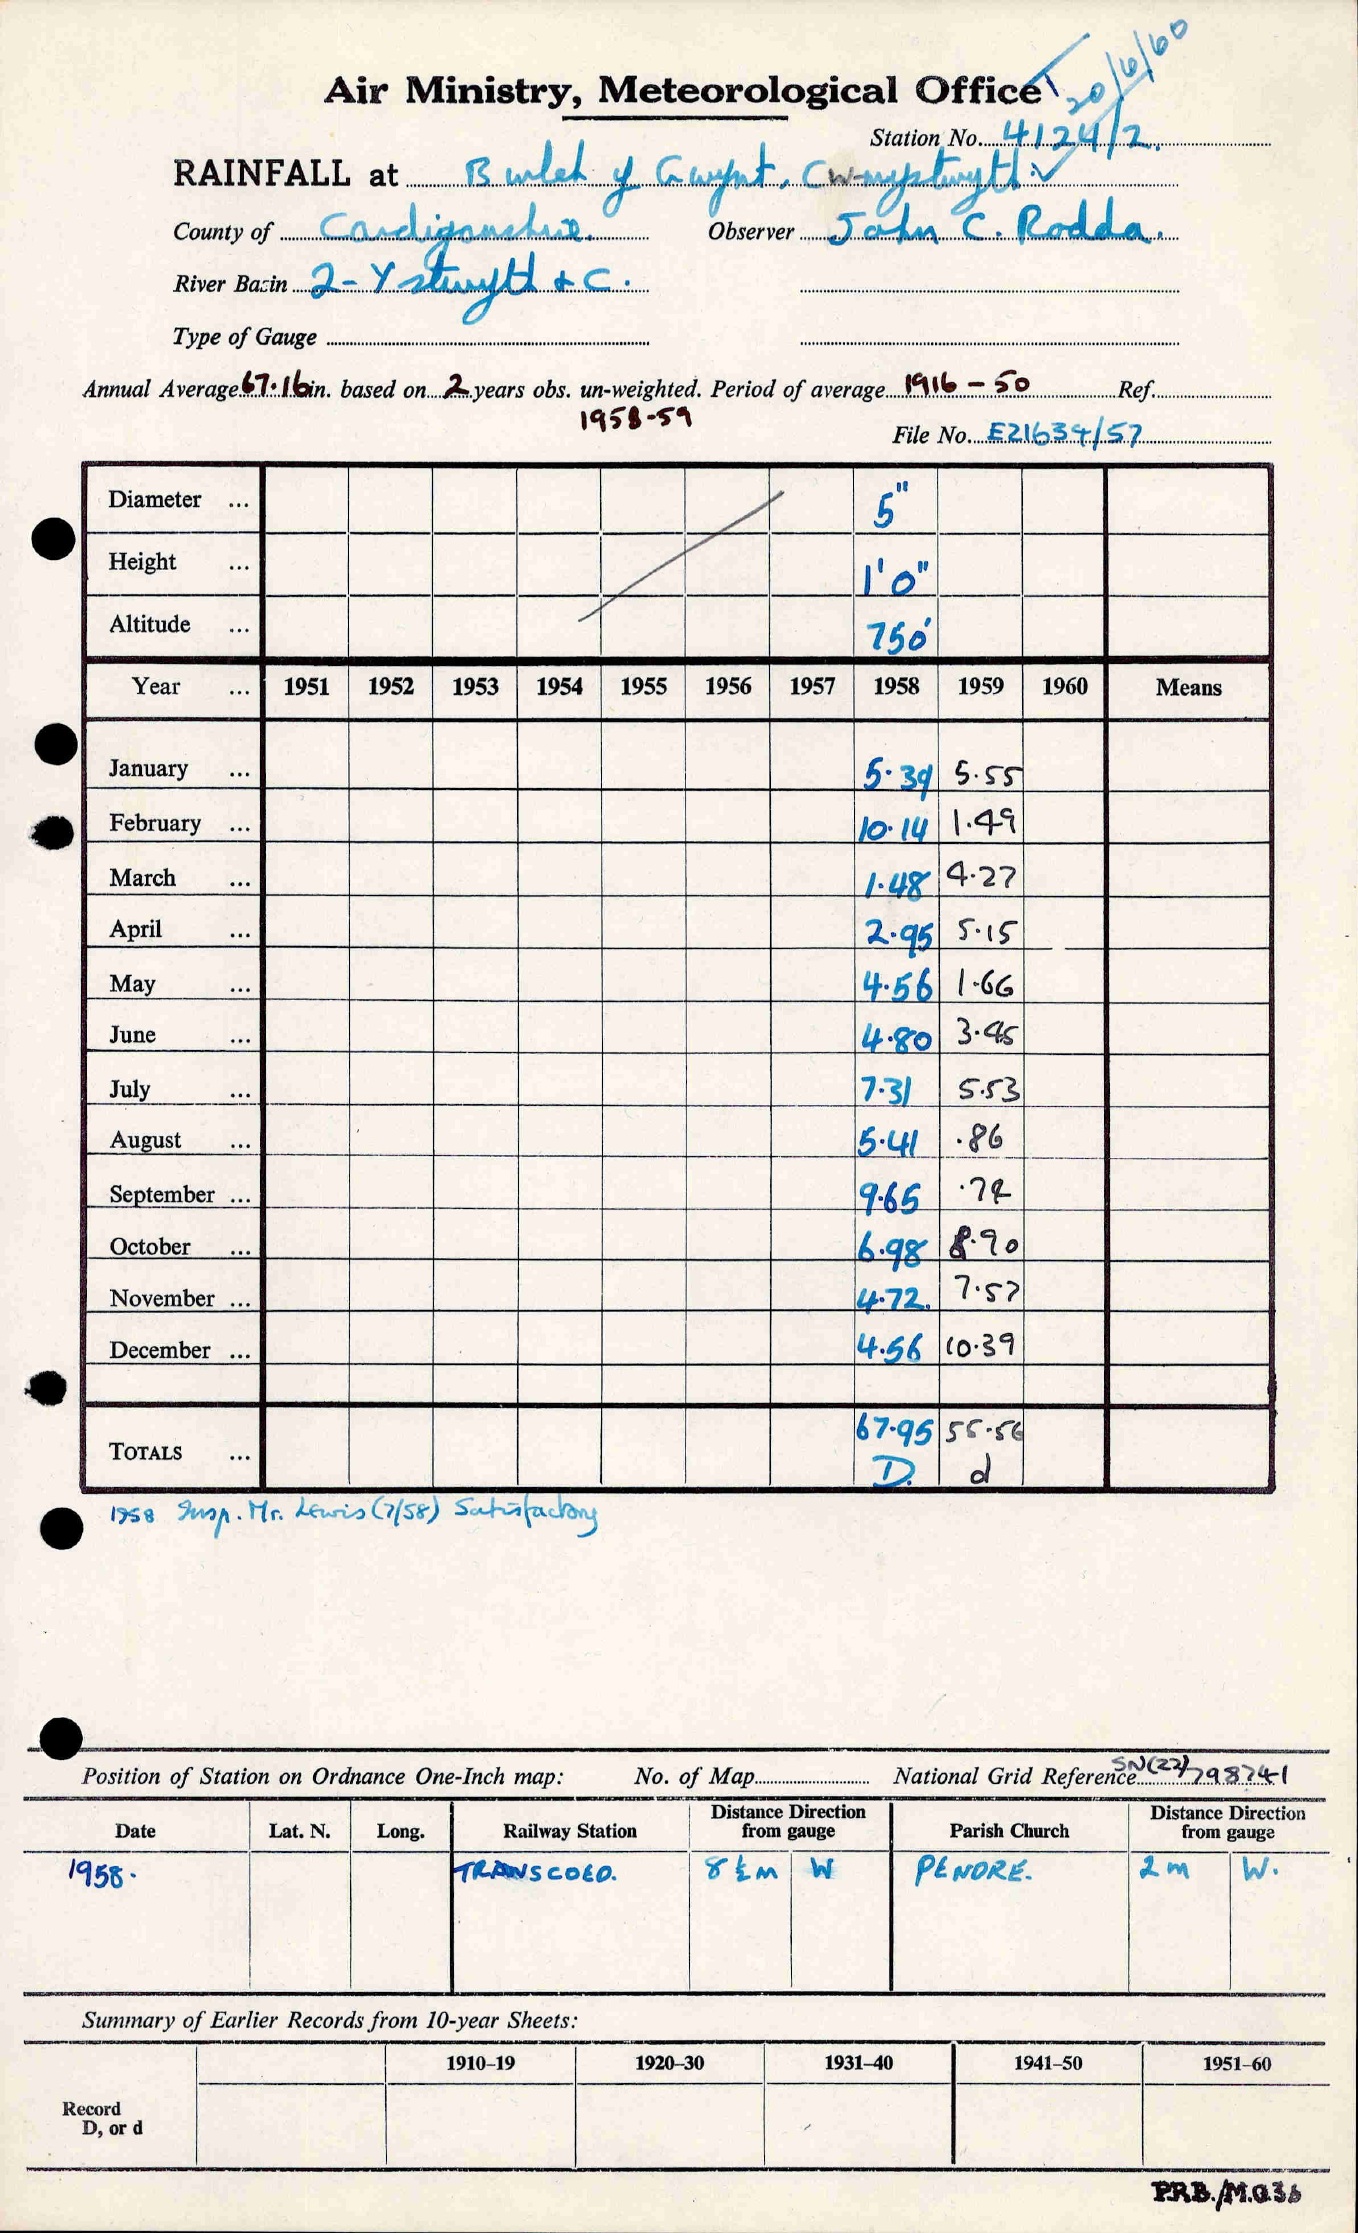 20/6/60
Air Ministry, Meteorological Office
Station No. 4124/2.
RAINFALL at Bwlch y Gwynt, Cwmystwyth.
County of Cardiganshire. Observer John C. Rodda.
River Basin 2-Ystwyth & C.
Type of Gauge
Annual Average 67.16 in. based on 2 years obs. un-weighted. Period of average 1916-50 Ref.
1958-59
File No. E21634/57
Diameter ... 5"
Height ... 1'0"
Altitude ... 750'
Year ... 1951 1952 1953 1954 1955 1956 1957 1958 1959 1960 Means
January ... 5.39 5.55
February ... 10.14 1.49
March ... 1.48 4.27
April ... 2.95 5.15
May ... 4.56 1.66
June ... 4.80 3.45
July ... 7.31 5.53
August ... 5.41 .86
September ... 9.65 .74
October ... 6.98 8.90
November ... 4.72. 7.57
December ... 4.56 10.39
TOTALS ... 67.95 55.56
D. d
1958 Insp. Mr. Lewis (7/58) Satisfactory
Position of Station on Ordnance One-Inch map: No. of Map National Grid Reference SN(22)798741
Date Lat. N. Long. Railway Station Distance Direction from gauge Parish Church Distance Direction from gauge
1958. TRANSCOED. 8½m W PENDRE. 2m W.
Summary of Earlier Records from 10-year Sheets:
1910–19 1920–30 1931–40 1941–50 1951–60
Record
D, or d
P.R.B./M.O.36